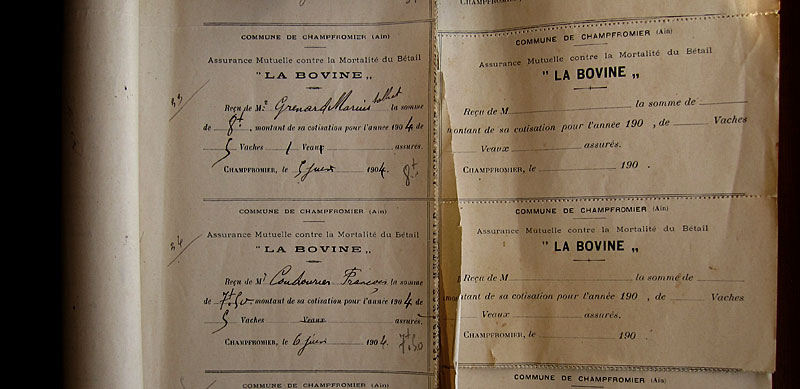 COMMUNE DE CHAMPFROMIER (Ain)
Assurance Mutuelle contre la Mortalité du Bétail
" LA BOVINE „
33
Reçu de M.r Grenard Marius la somme
de 8f, montant de sa cotisation pour l'année 1904 de
5 Vaches 1 Veaux assurés.
CHAMPFROMIER, le 5 juin 1904. 8f
COMMUNE DE CHAMPFROMIER (Ain)
Assurance Mutuelle contre la Mortalité du Bétail
" LA BOVINE „
34
Reçu de M.r Coudourier François la somme
de 7f50 montant de sa cotisation pour l'année 1904 de
5 Vaches Veaux assurés.
CHAMPFROMIER, le 6 juin 1904. 7f50
COMMUNE DE CHAMPFROMIER (Ain)
CHAMPFROMIER,
COMMUNE DE CHAMPFROMIER (Ain)
Assurance Mutuelle contre la Mortalité du Bétail
" LA BOVINE „
Reçu de M la somme de
montant de sa cotisation pour l'année 190 , de Vaches
Veaux assurés.
CHAMPFROMIER, le 190 .
COMMUNE DE CHAMPFROMIER (Ain)
Assurance Mutuelle contre la Mortalité du Bétail
" LA BOVINE „
Reçu de M la somme de
montant de sa cotisation pour l'année 190 , de Vaches
Veaux assurés.
CHAMPFROMIER, le 190 .
COMMUNE DE CHAMPFROMIER (Ain)